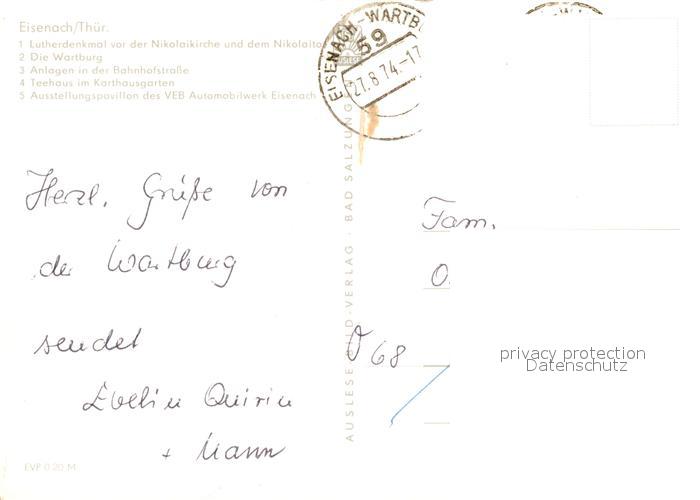 Eisenach/Thür.
1 Lutherdenkmal vor der Nikolaikirche und dem Nikolaito
2 Die Wartburg
3 Anlagen in der Bahnhofstraße
4 Teehaus im Karthausgarten
5 Ausstellungspavillon des VEB Automobilwerk Eisenach
EISENACH-WARTB
59
27.8.74.-17
Herzl. Grüße von
der Wartburg
sendet
Evelin Quirin
+ Mann
EVP 0.20 M
AUSLESE BILD-VERLAG · BAD SALZUNGE
Fam.
O.
68
privacy protection
Datenschutz